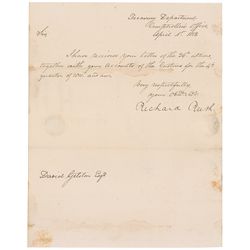 Treasury Department
Comptroller's Office
April 1st
Sir
I have received your letter of the 26th ultimo,
together with your accounts of the Customs for the 4th
quarter of
Very respectfully
your
Richard Rush
David Gelston Esqr